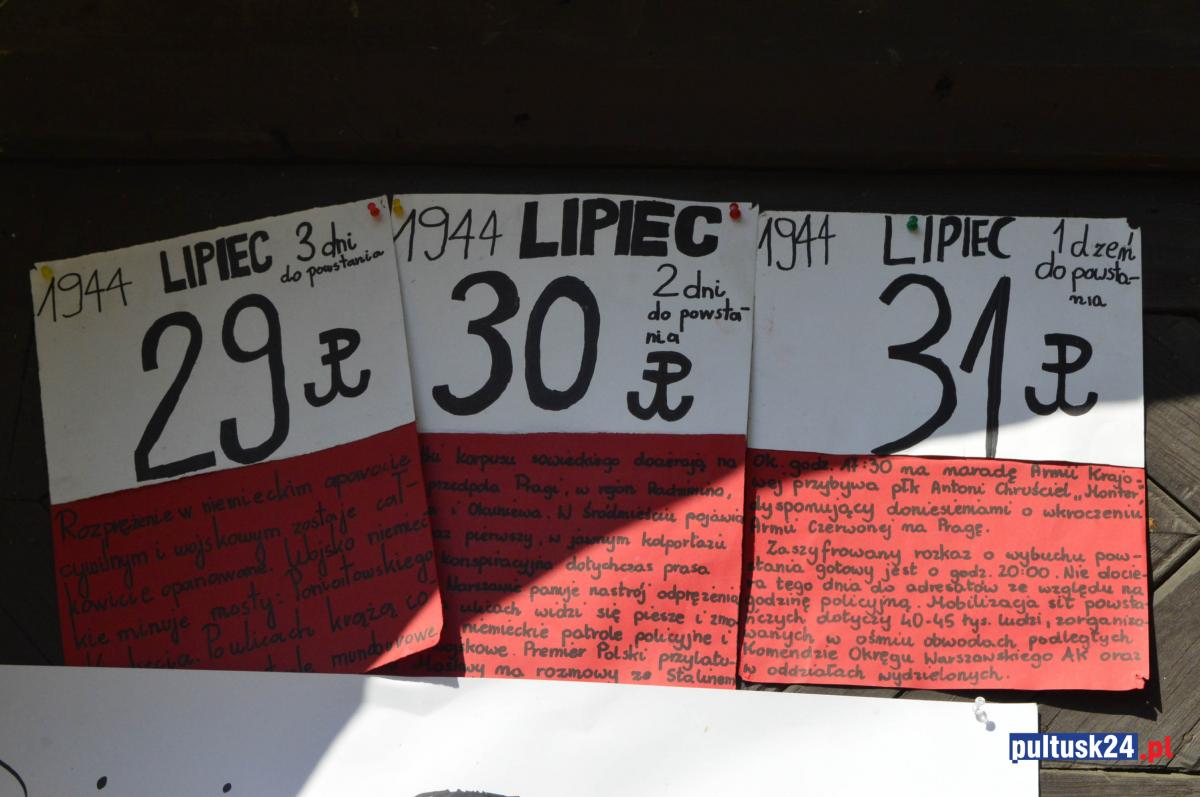 1944 LIPIEC 3 dni
do powstania
29
Rozprężenie w niemieckim aparacie
cywilnym i wojskowym zostaje cał-
kowicie opanowane. Wojsko niemiec
kie minuje mosty: Poniatowskiego
Po ulicach krążą co
mundurowe
1944 LIPIEC
2 dni
do powsta-
nia
30
korpusu sowieckiego docierają na
przedpola Pragi, w rejon Radzymina,
i Okuniewa. W Śródmieściu pojawia
pierwszy, w jawnym kolportażu
konspiracyjna dotychczas prasa
Warszawie panuje nastrój odprężenia
ulicach widzi się piesze i zmo
niemieckie patrole policyjne i
wojskowe. Premier Polski przylatu-
Moskwy na rozmowy ze Stalinem
1944 LIPIEC 1 dzeń
do powsta-
nia
31
Ok. godz. 17:30 na naradę Armii Krajo-
wej przybywa płk Antoni Chruściel „Monter"
dysponujący doniesieniami o wkroczeniu
Armii Czerwonej na Pragę.
Zaszyfrowany rozkaz o wybuchu pow-
stania gotowy jest o godz. 20:00. Nie docie-
ra tego dnia do adresatów ze względu na
godzinę policyjną. Mobilizacja sił powsta-
ńczych dotyczy 40-45 tys. ludzi, zorganizo-
wanych w ośmiu obwodach podległych
Komendzie Okręgu Warszawskiego AK oraz
w oddziałach wydzielonych.
pultusk24.pl